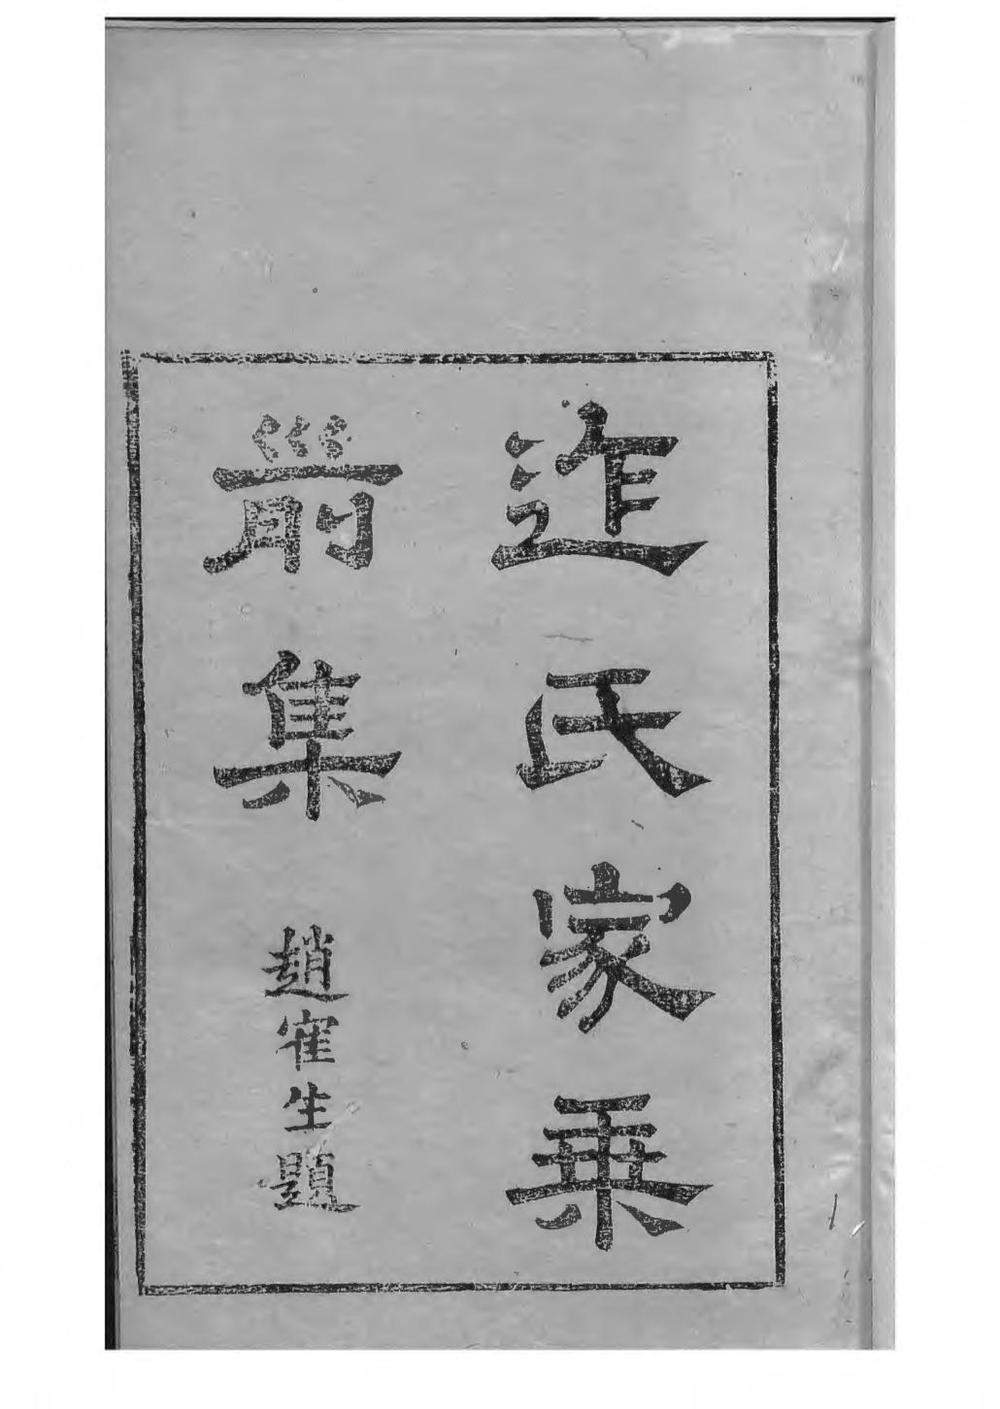 迮氏家乘
前集
趙寉生題